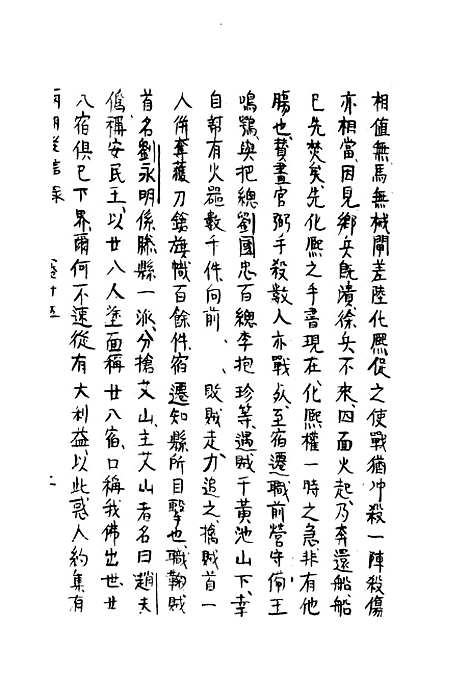 相值無馬無械閘差陸化熙促之使戰猶冲殺一陣殺傷
亦相當因見鄉兵旣潰徐兵不來四面火起乃奔還船船
已先焚矣先化熙之手書現在化熙權一時之急非有他
膓也賛畫官弼手殺數人亦戰歿至宿遷職前營守備王
鳴鶚與把總劉國忠百總李抱珍等遇賊于黃池山下幸
自帶有火器數千件向前 敗賊走力追之擒賊首一
人併奪獲刀鎗旗幟百餘件宿遷知縣所目擊也職鞫賊
首名劉永明係滕縣一派分搶艾山主艾山者名曰趙夫
僞稱安民王以廿八人塗面稱廿八宿口稱我佛出世廿
八宿俱已下界爾何不速從有大利益以此惑人約集有
兩朝從信錄 卷十五